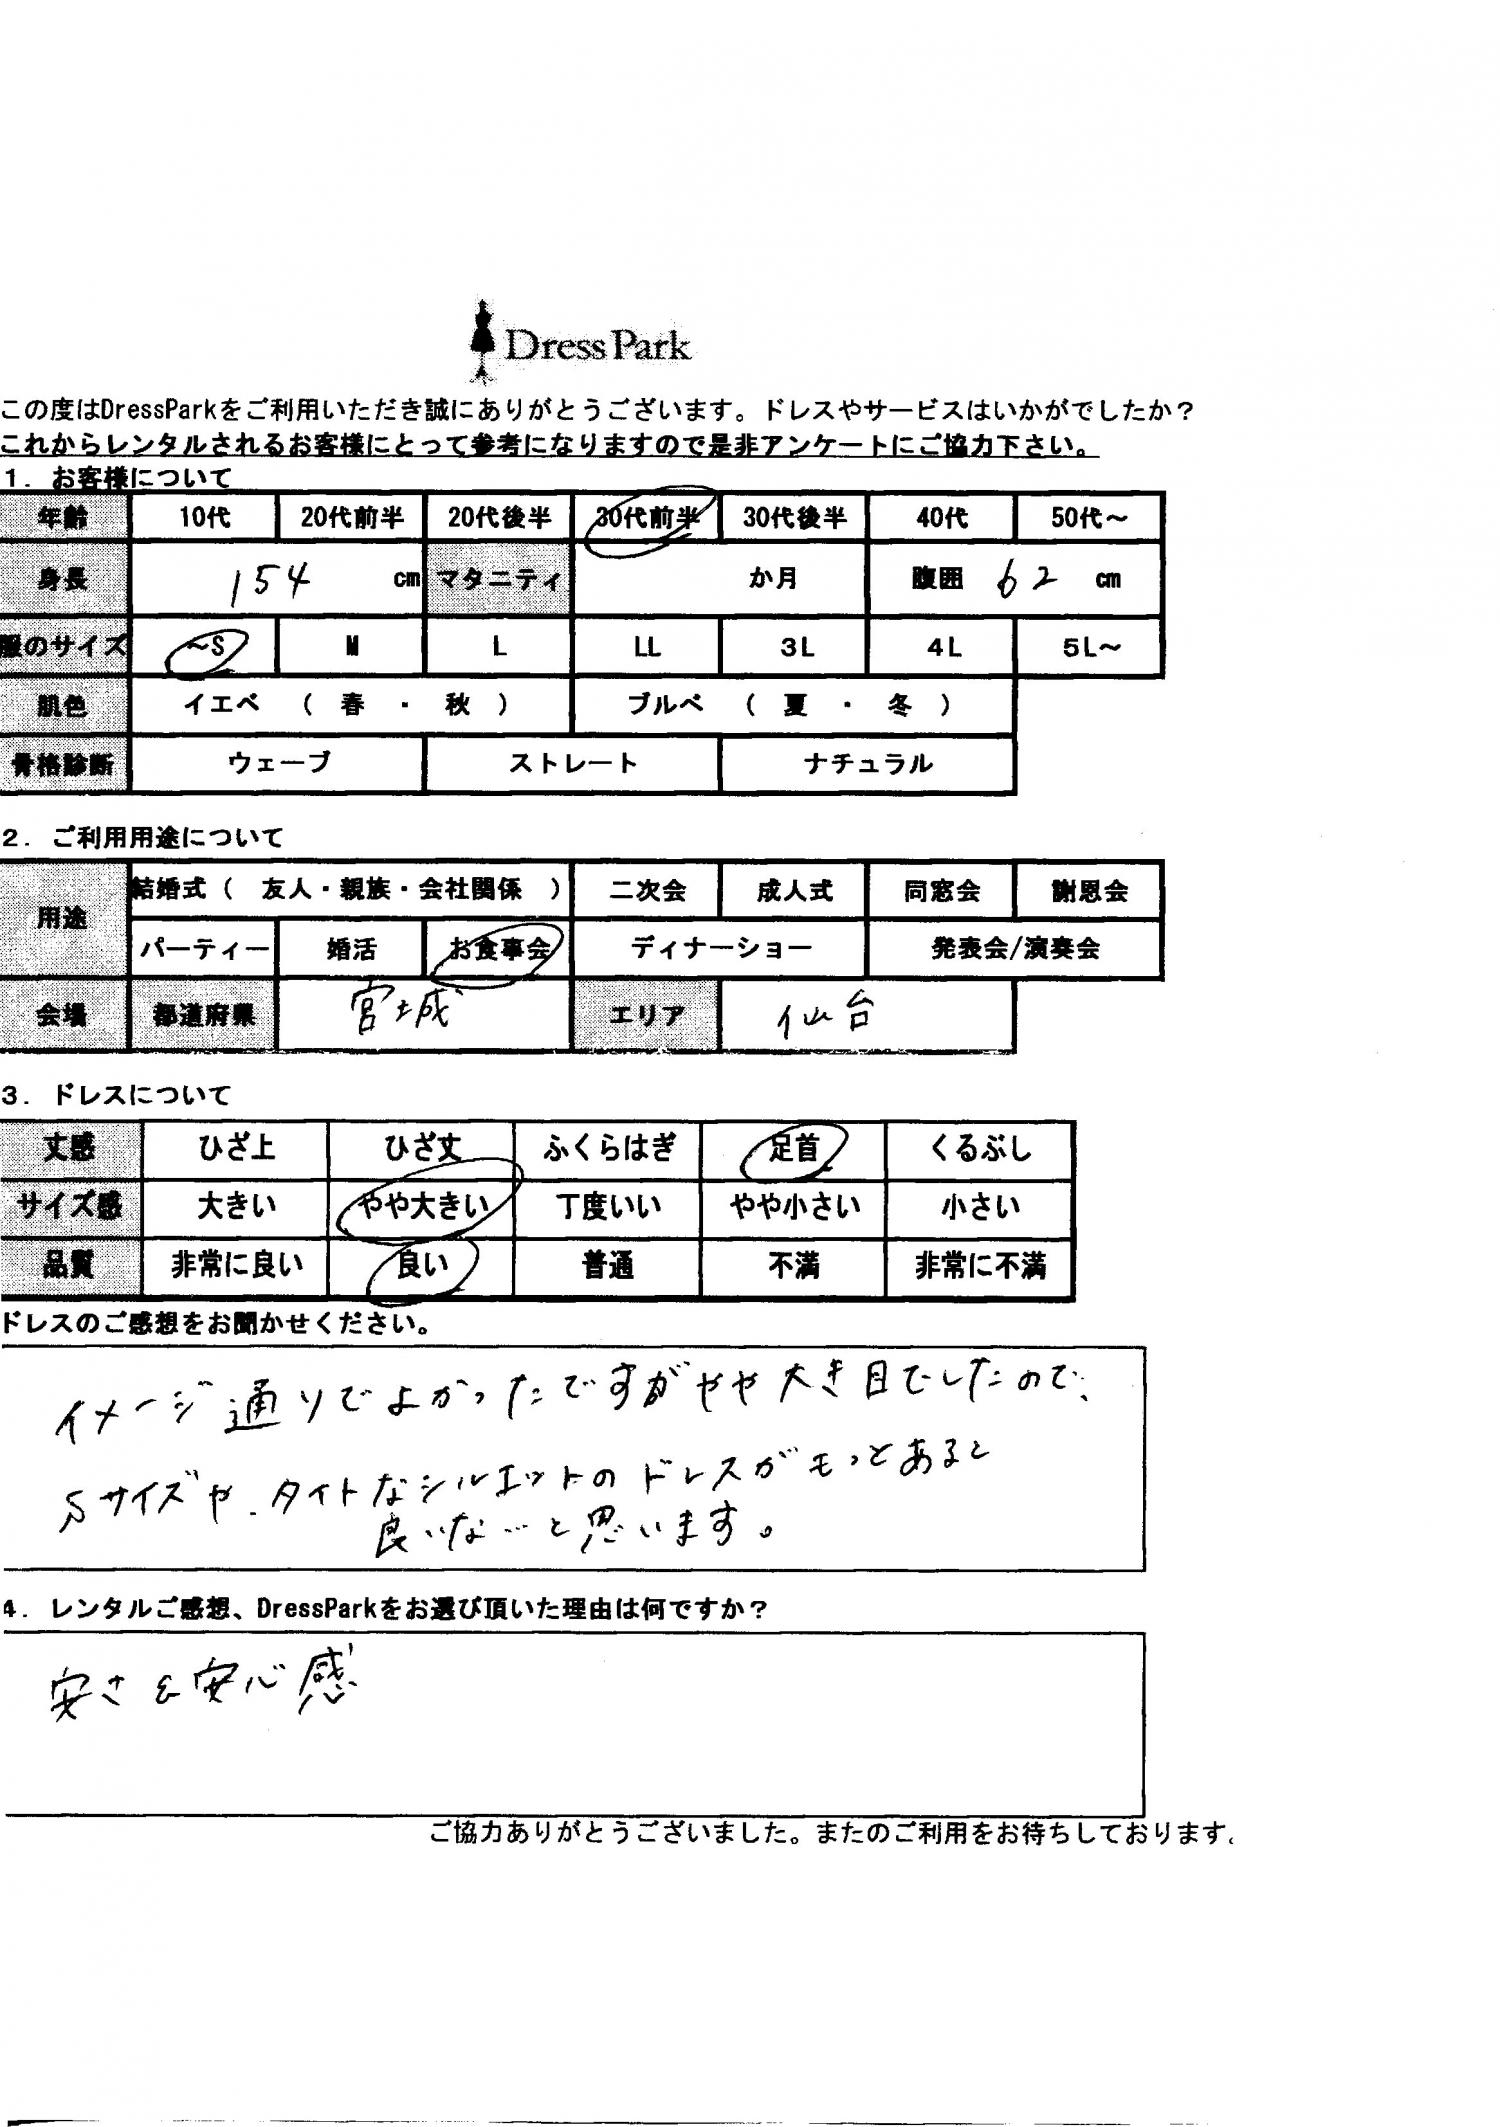 DressPark
この度はDressParkをご利用いただき誠にありがとうございます。ドレスやサービスはいかがでしたか？
これからレンタルされるお客様にとって参考になりますので是非アンケートにご協力下さい。
1. お客様について
年齢 10代 20代前半 20代後半 30代前半 30代後半 40代 50代～
身長 154 cm マタニティ か月 腹囲 62 cm
服のサイズ ～S M L LL 3L 4L 5L～
肌色 イエベ （ 春 ・ 秋 ） ブルベ （ 夏 ・ 冬 ）
骨格診断 ウェーブ ストレート ナチュラル
2. ご利用用途について
用途 結婚式（ 友人・親族・会社関係 ） 二次会 成人式 同窓会 謝恩会
パーティー 婚活 お食事会 ディナーショー 発表会/演奏会
会場 都道府県 宮城 エリア 仙台
3. ドレスについて
丈感 ひざ上 ひざ丈 ふくらはぎ 足首 くるぶし
サイズ感 大きい やや大きい 丁度いい やや小さい 小さい
品質 非常に良い 良い 普通 不満 非常に不満
ドレスのご感想をお聞かせください。
イメージ通りでよかったですがやや大き目でしたので、
Sサイズや、タイトなシルエットのドレスがもっとあると
良いな…と思います。
4. レンタルご感想、DressParkをお選び頂いた理由は何ですか？
安さ＆安心感
ご協力ありがとうございました。またのご利用をお待ちしております。